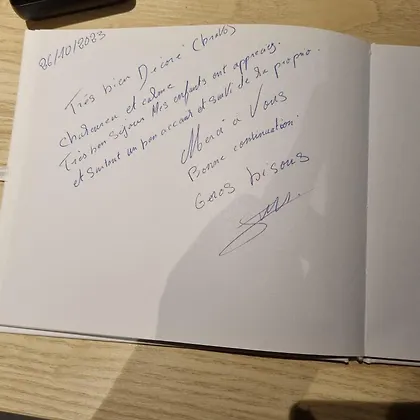 26/10/2023
Très bien Decoré (bravo)
chaleureux et calme
Très bon sejour Mes enfants ont appreciez.
et surtout un bon accueil et suivi de la proprio.
Merci a Vous
Bonne continuation.
Gros bisous